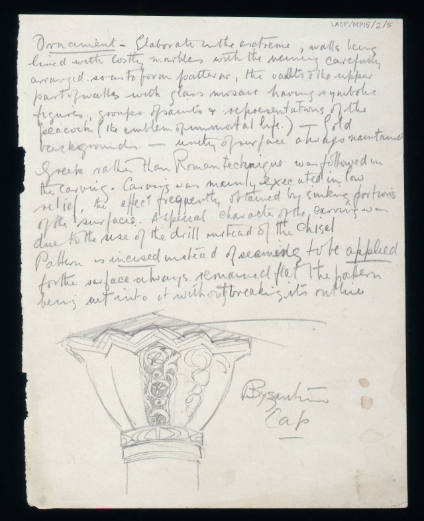 LACF/MP15/2/5
Ornament – Elaborate in the extreme, walls being
lined with costly marbles with the veining carefully
arranged so as to form patterns, the vaults & the upper
part of walls with glass mosaic having symbolic
figures, groups of saints & representations of the
peacock (the emblem of immortal life.) – Gold
backgrounds – unity of surface always maintained
Greek rather than Roman technique was followed in
the carving. Carving was mainly executed in low
relief, the effect frequently obtained by sinking portions
of the surface. A special character of the carving was
due to the use of the drill instead of the chisel
Pattern is incised instead of seeming to be applied
for the surface always remained flat the pattern
being cut into it without breaking its outline
Byzantine
Cap